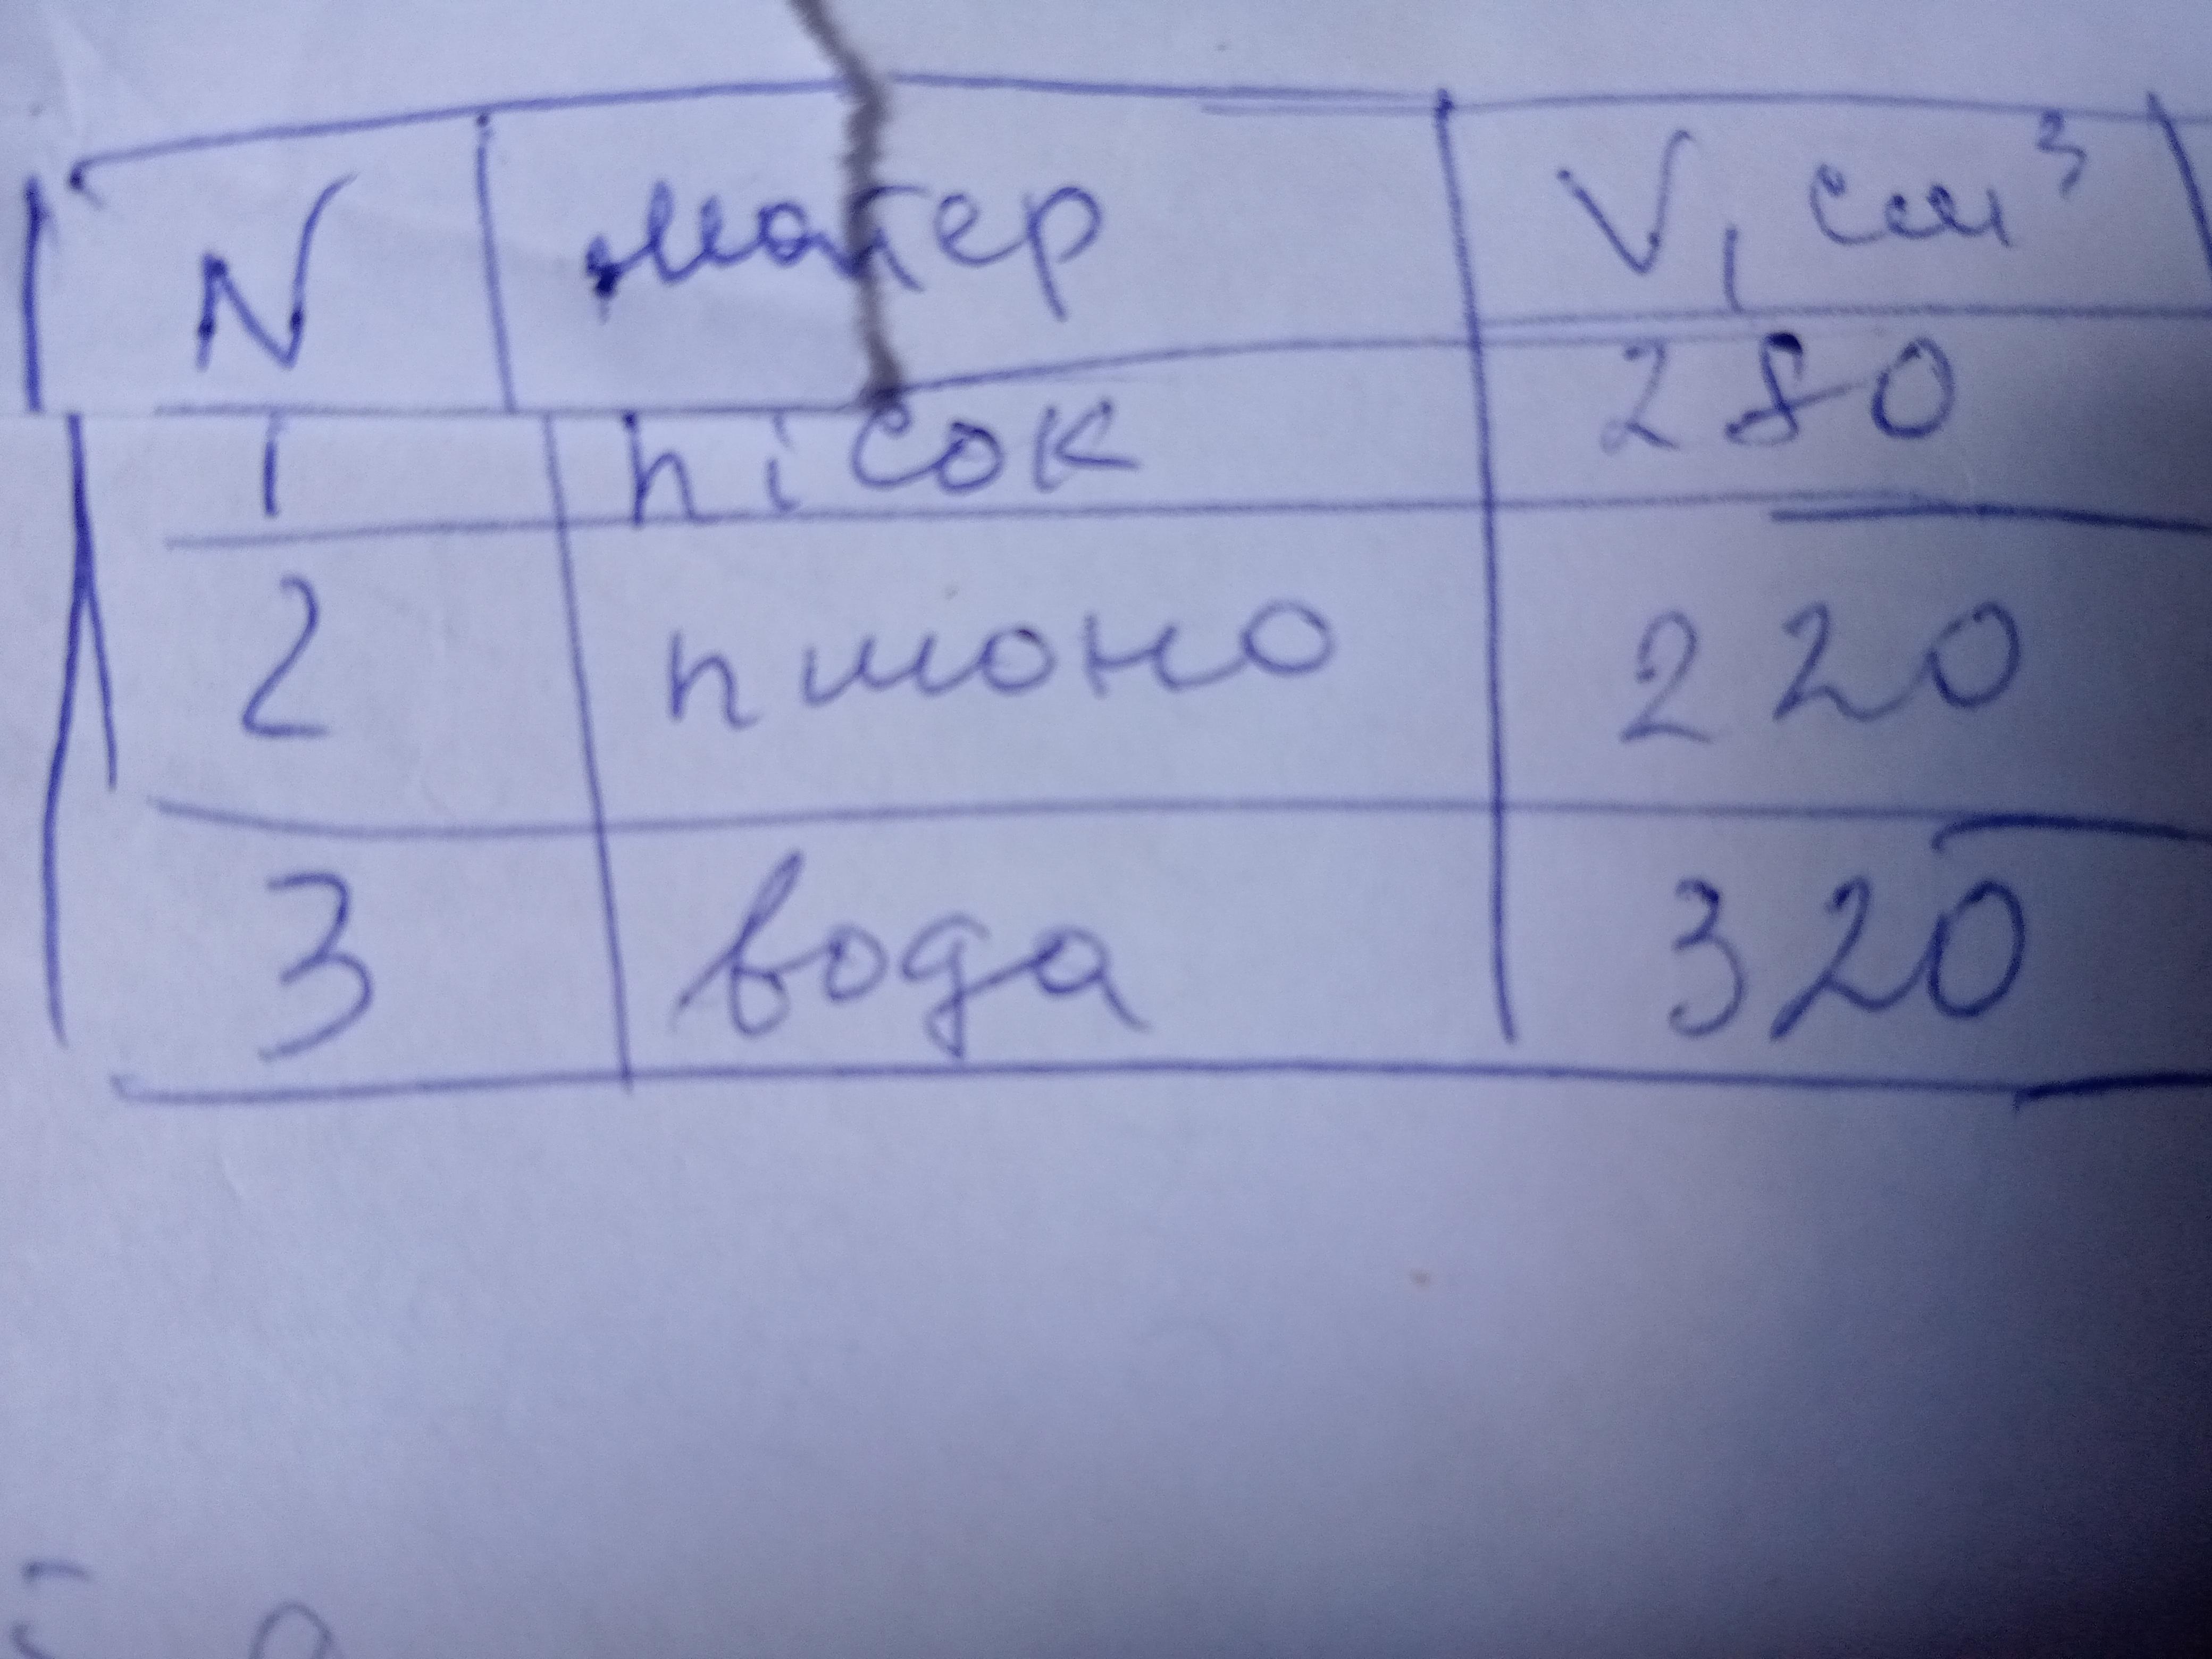 N матер V, см³
1 пісок 280
2 пшоно 220
3 вода 320